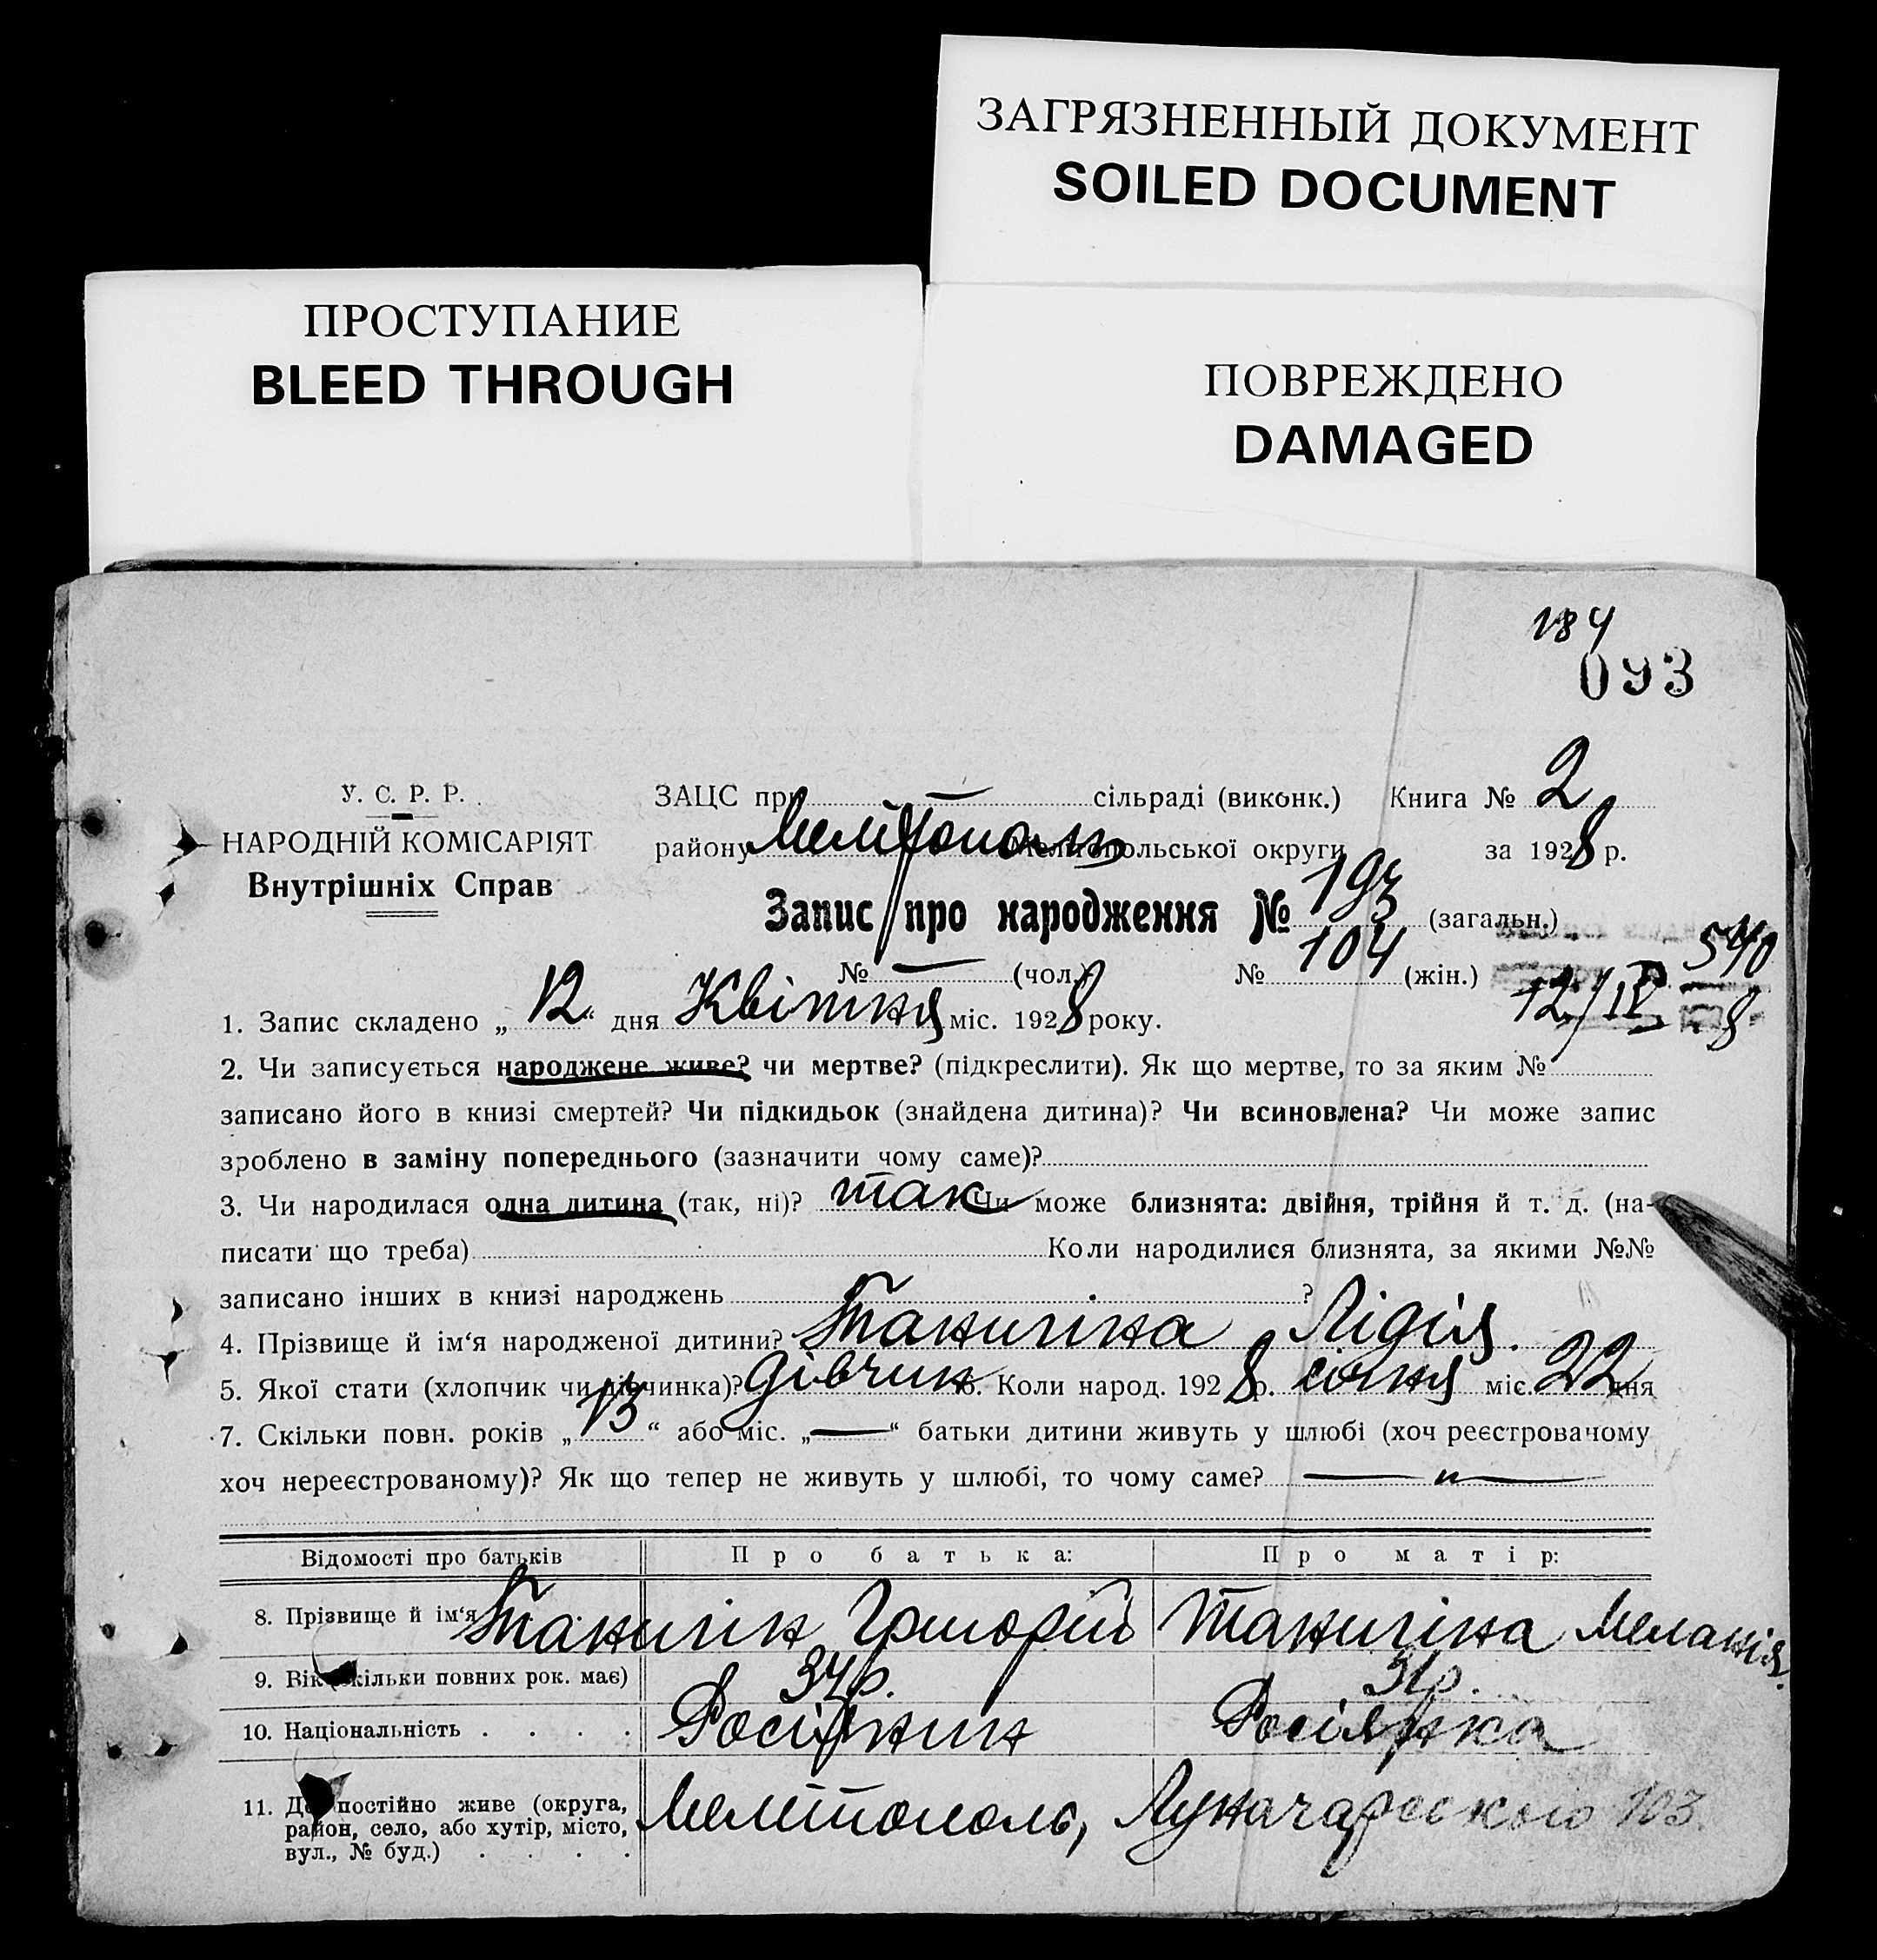 ЗАГРЯЗНЕННЫЙ ДОКУМЕНТ
SOILED DOCUMENT
ПРОСТУПАНИЕ
BLEED THROUGH
ПОВРЕЖДЕНО
DAMAGED
184
093
У. С. Р. Р.
НАРОДНІЙ КОМІСАРІЯТ
Внутрішніх Справ
ЗАЦС при — сільраді (виконк.) Книга № 2
району Мелітополь Мелітопольської округи за 1928 р.
Запис про народження № 193 (загальн.)
№ — (чол.) № 104 (жін.)
540
12/IV 8
1. Запис складено „12“ дня Квітня міс. 1928 року.
2. Чи записується народжене живе? чи мертве? (підкреслити). Як що мертве, то за яким №
записано його в книзі смертей? Чи підкидьок (знайдена дитина)? Чи всиновлена? Чи може запис
зроблено в заміну попереднього (зазначити чому саме)?
3. Чи народилася одна дитина (так, ні)? так Чи може близнята: двійня, трійня й т. д. (на-
писати що треба) Коли народилися близнята, за якими №№
записано інших в книзі народжень ?
4. Прізвище й ім‘я народженої дитини? Таничіна Лідія.
5. Якої стати (хлопчик чи дівчинка)? дівчин 6. Коли народ. 1928 р. січня міс. 22 дня
7. Скільки повн. років „13“ або міс. „—“ батьки дитини живуть у шлюбі (хоч реєстрованому
хоч нереєстрованому)? Як що тепер не живуть у шлюбі, то чому саме? — „ —
Відомості про батьків Про батька: Про матір:
8. Прізвище й ім‘я Таничін Григорій Таничіна Меланія.
9. Вік (скільки повних рок. має) 34р. 31р.
10. Національність . . . . Росіянин Росіянка
11. Де постійно живе (округа,
район, село, або хутір, місто,
вул., № буд.) . . . .
Мелітополь, Луначарського 103.